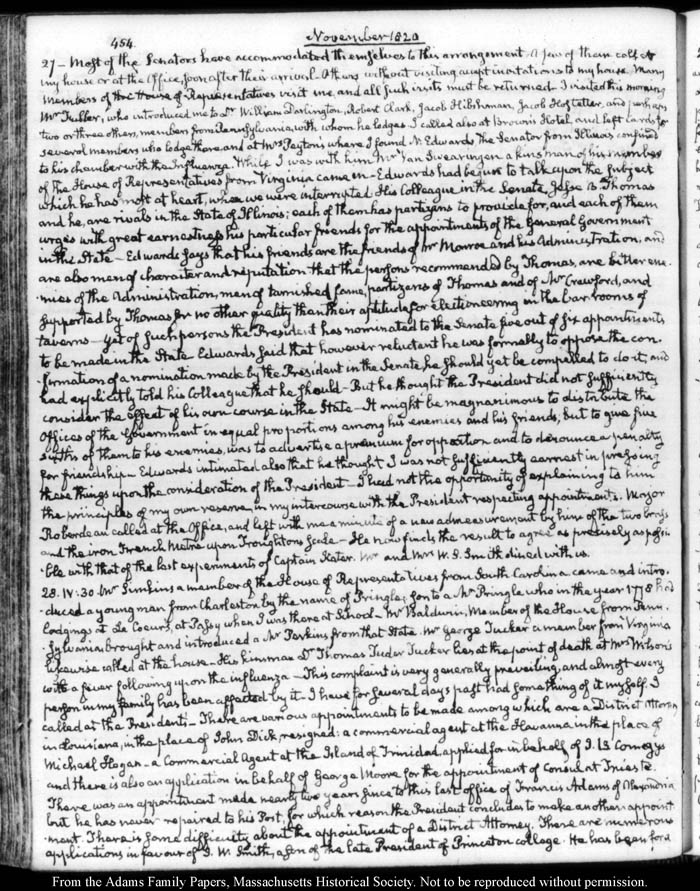 454.
November 1820
27 – Most of the Senators have accommodated themselves to this arrangement. A few of them call at
my house or at the Office, soon after their arrival. Others without visiting accept invitations to my house. Many
Members of the House of Representatives visit me and all such visits must be returned. I visited this morning
Mr Fuller, who introduced me to Dr William Darlington, Robert Clark, Jacob Hibshman, Jacob Hostetter, and perhaps
two or three others, members from Pennsylvania, with whom he lodges I called also at Brown's Hotel and left cards for
several members who lodge there, and at Mrs Peyton's where I found N. Edwards the Senator from Illinois confined
to his chamber with the Influenza. While I was with him Mr Van Swearingen a kinsman of his a member
of the House of Representatives from Virginia came in – Edwards had begun to talk upon the subject
which he has most at heart, when we were interrupted His Colleague in the Senate, Jesse B. Thomas
and he, are rivals in the State of Illinois; each of them has partizans to provide for, and each of them
urges with great earnestness his particular friends for the appointments of the General Government
in the State – Edwards says that his friends are the friends of Mr Monroe and his Administration, and
are also men of character and reputation that the persons recommended by Thomas, are bitter ene-
-mies of the Administration, men of tarnished fame, partizans of Thomas and of Mr Crawford, and
supported by Thomas for no other quality than their aptitude for electioneering in the bar rooms of
taverns – yet of such persons the President has nominated to the Senate five out of six appointments
to be made in the State Edwards said that however reluctant he was formally to oppose the con-
-firmation of a nomination made by the President in the Senate he should yet be compelled to do it, and
had explicitly told his Colleague that he should – But he thought the President did not sufficiently
consider the effect of his own course in the State – It might be magnanimous to distribute the
Offices of the Government in equal proportions among his enemies and his friends, but to give five
sixths of them to his enemies, was to advertise a premium for opposition and to denounce a penalty
for friendship – Edwards intimated also that he thought I was not sufficiently earnest in pressing
these things upon the consideration of the President – I had not the opportunity of explaining to him
the principles of my own reserve, in my intercourse with the President respecting appointments. Major
Roberdeau called at the Office, and left with me a minute of a new admeasurement by him of the two brass
and the iron French Metre upon Troughtons Scale – He now finds the result to agree as precisely as possi-
-ble with that of the last experiments of Captain Kater. Mr and Mrs W. S. Smith dined with us.
28. IV:30. Mr Simkins a member of the House of Representatives from South Carolina came and intro-
-duced a young man from Charleston by the name of Pringle; son to a Mr Pringle who in the year 1778 had
lodgings at Le Coeur's, at Passy when I was there at School Mr Baldwin, Member of the House from Penn-
-sylvania brought and introduced a Mr Perkins from that State. Mr George Tucker a member from Virginia
likewise called at the house. His kinsman Dr Thomas Tudor Tucker lies at the point of death at Mrs Wilson's
with a fever following upon the influenza – This complaint is very generally prevailing, and almost every
person in my family has been affected by it. I have for several days past had something of it myself. I
called at the President's – There are various appointments to be made among which are a District Attorney
in Louisiana, in the place of John Dick, resigned: a commercial agent at the Havanna in the place of
Michael Hogan – a Commercial Agent at the Island of Trinidad applied for in behalf of J. B. Comegys
and there is also an application in behalf of George Moore for the appointment of Consul at Trieste.
There was an appointment made nearly two years since to this last office of Francis Adams of Alexandria
but he has never repaired to his Post, for which reason the President concludes to make another appoint-
-ment. There is some difficulty about the appointment of a District Attorney. There are numerous
applications in favour of J. W. Smith, a son of the late President of Princeton college. He has been ford
From the Adams Family Papers, Massachusetts Historical Society. Not to be reproduced without permission.